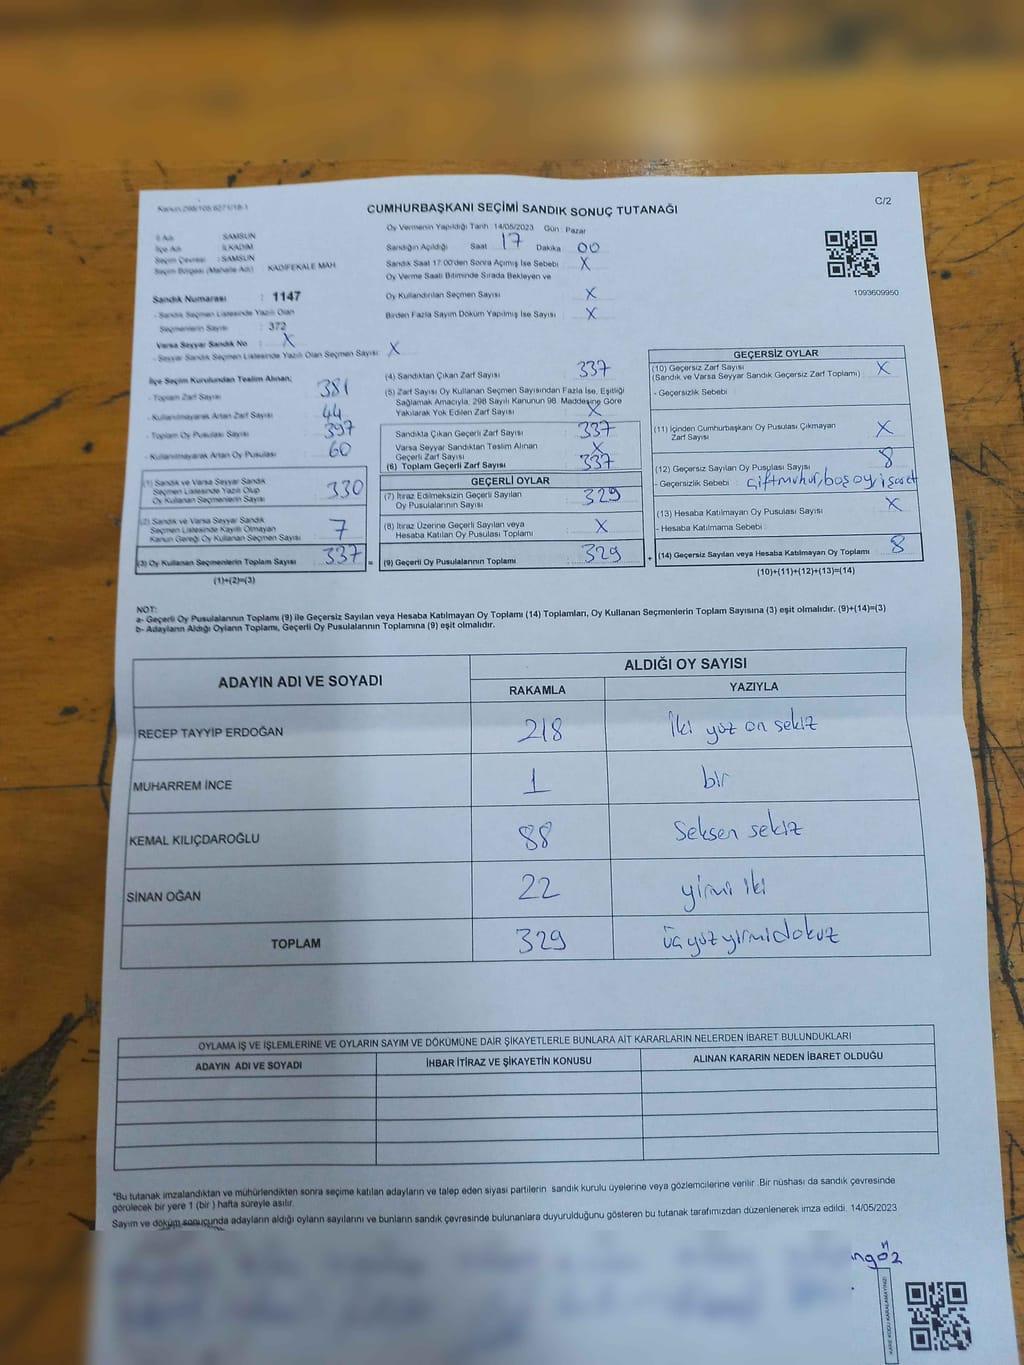 Kanun:298/108.6271/18-1
C/2
CUMHURBAŞKANI SEÇİMİ SANDIK SONUÇ TUTANAĞI
İl Adı : SAMSUN
İlçe Adı : İLKADIM
Seçim Çevresi : SAMSUN
Seçim Bölgesi (Mahalle Adı) : KADİFEKALE MAH.
Oy Vermenin Yapıldığı Tarih : 14/05/2023 Gün : Pazar
Sandığın Açıldığı Saat 17 Dakika 00
Sandık Saat 17:00'den Sonra Açımış İse Sebebi : X
Oy Verme Saati Bitiminde Sırada Bekleyen ve
Oy Kullandırılan Seçmen Sayısı : X
Birden Fazla Sayım Döküm Yapılmış İse Sayısı : X
1093609950
Sandık Numarası : 1147
- Sandık Seçmen Listesinde Yazılı Olan
Seçmenlerin Sayısı : 372
Varsa Seyyar Sandık No : X
- Seyyar Sandık Seçmen Listesinde Yazılı Olan Seçmen Sayısı: X
İlçe Seçim Kurulundan Teslim Alınan;
- Toplam Zarf Sayısı : 381
- Kullanılmayarak Artan Zarf Sayısı : 44
- Toplam Oy Pusulası Sayısı : 397
- Kullanılmayarak Artan Oy Pusulası : 60
(1) Sandık ve Varsa Seyyar Sandık
Seçmen Listesinde Yazılı Olup
Oy Kullanan Seçmenlerin Sayısı : 330
(2) Sandık ve Varsa Seyyar Sandık
Seçmen Listesinde Kayıtlı Olmayan
Kanun Gereği Oy Kullanan Seçmen Sayısı : 7
(3) Oy Kullanan Seçmenlerin Toplam Sayısı : 337 =
(1)+(2)=(3)
(4) Sandıktan Çıkan Zarf Sayısı : 337
(5) Zarf Sayısı Oy Kullanan Seçmen Sayısından Fazla İse, Eşitliği
Sağlamak Amacıyla, 298 Sayılı Kanunun 98. Maddesine Göre
Yakılarak Yok Edilen Zarf Sayısı : X
Sandıkta Çıkan Geçerli Zarf Sayısı : 337
Varsa Seyyar Sandıktan Teslim Alınan
Geçerli Zarf Sayısı : X
(6) Toplam Geçerli Zarf Sayısı : 337
GEÇERLİ OYLAR
(7) İtiraz Edilmeksizin Geçerli Sayılan
Oy Pusulalarının Sayısı : 329
(8) İtiraz Üzerine Geçerli Sayılan veya
Hesaba Katılan Oy Pusulası Toplamı : X
(9) Geçerli Oy Pusulalarının Toplamı : 329 +
GEÇERSİZ OYLAR
(10) Geçersiz Zarf Sayısı : X
(Sandık ve Varsa Seyyar Sandık Geçersiz Zarf Toplamı)
- Geçersizlik Sebebi :
(11) İçinden Cumhurbaşkanı Oy Pusulası Çıkmayan
Zarf Sayısı : X
(12) Geçersiz Sayılan Oy Pusulası Sayısı : 8
- Geçersizlik Sebebi : Çift mühür, boş oy, işaret
(13) Hesaba Katılmayan Oy Pusulası Sayısı : X
- Hesaba Katılmama Sebebi :
(14) Geçersiz Sayılan veya Hesaba Katılmayan Oy Toplamı : 8
(10)+(11)+(12)+(13)=(14)
NOT:
a- Geçerli Oy Pusulalarının Toplamı (9) ile Geçersiz Sayılan veya Hesaba Katılmayan Oy Toplamı (14) Toplamları, Oy Kullanan Seçmenlerin Toplam Sayısına (3) eşit olmalıdır. (9)+(14)=(3)
b- Adayların Aldığı Oyların Toplamı, Geçerli Oy Pusulalarının Toplamına (9) eşit olmalıdır.
ADAYIN ADI VE SOYADI
ALDIĞI OY SAYISI
RAKAMLA YAZIYLA
RECEP TAYYİP ERDOĞAN 218 İki yüz on sekiz
MUHARREM İNCE 1 bir
KEMAL KILIÇDAROĞLU 88 Seksen sekiz
SİNAN OĞAN 22 yirmi iki
TOPLAM 329 üç yüz yirmi dokuz
OYLAMA İŞ VE İŞLEMLERİNE VE OYLARIN SAYIM VE DÖKÜMÜNE DAİR ŞİKAYETLERLE BUNLARA AİT KARARLARIN NELERDEN İBARET BULUNDUKLARI
ADAYIN ADI VE SOYADI İHBAR İTİRAZ VE ŞİKAYETİN KONUSU ALINAN KARARIN NEDEN İBARET OLDUĞU
*Bu tutanak imzalandıktan ve mühürlendikten sonra seçime katılan adayların ve talep eden siyasi partilerin sandık kurulu üyelerine veya gözlemcilerine verilir .Bir nüshası da sandık çevresinde
görülecek bir yere 1 (bir ) hafta süreyle asılır.
Sayım ve döküm sonucunda adayların aldığı oyların sayılarını ve bunların sandık çevresinde bulunanlara duyurulduğunu gösteren bu tutanak tarafımızdan düzenlenerek imza edildi. 14/05/2023
KARE KODU KARALAMAYINIZ!